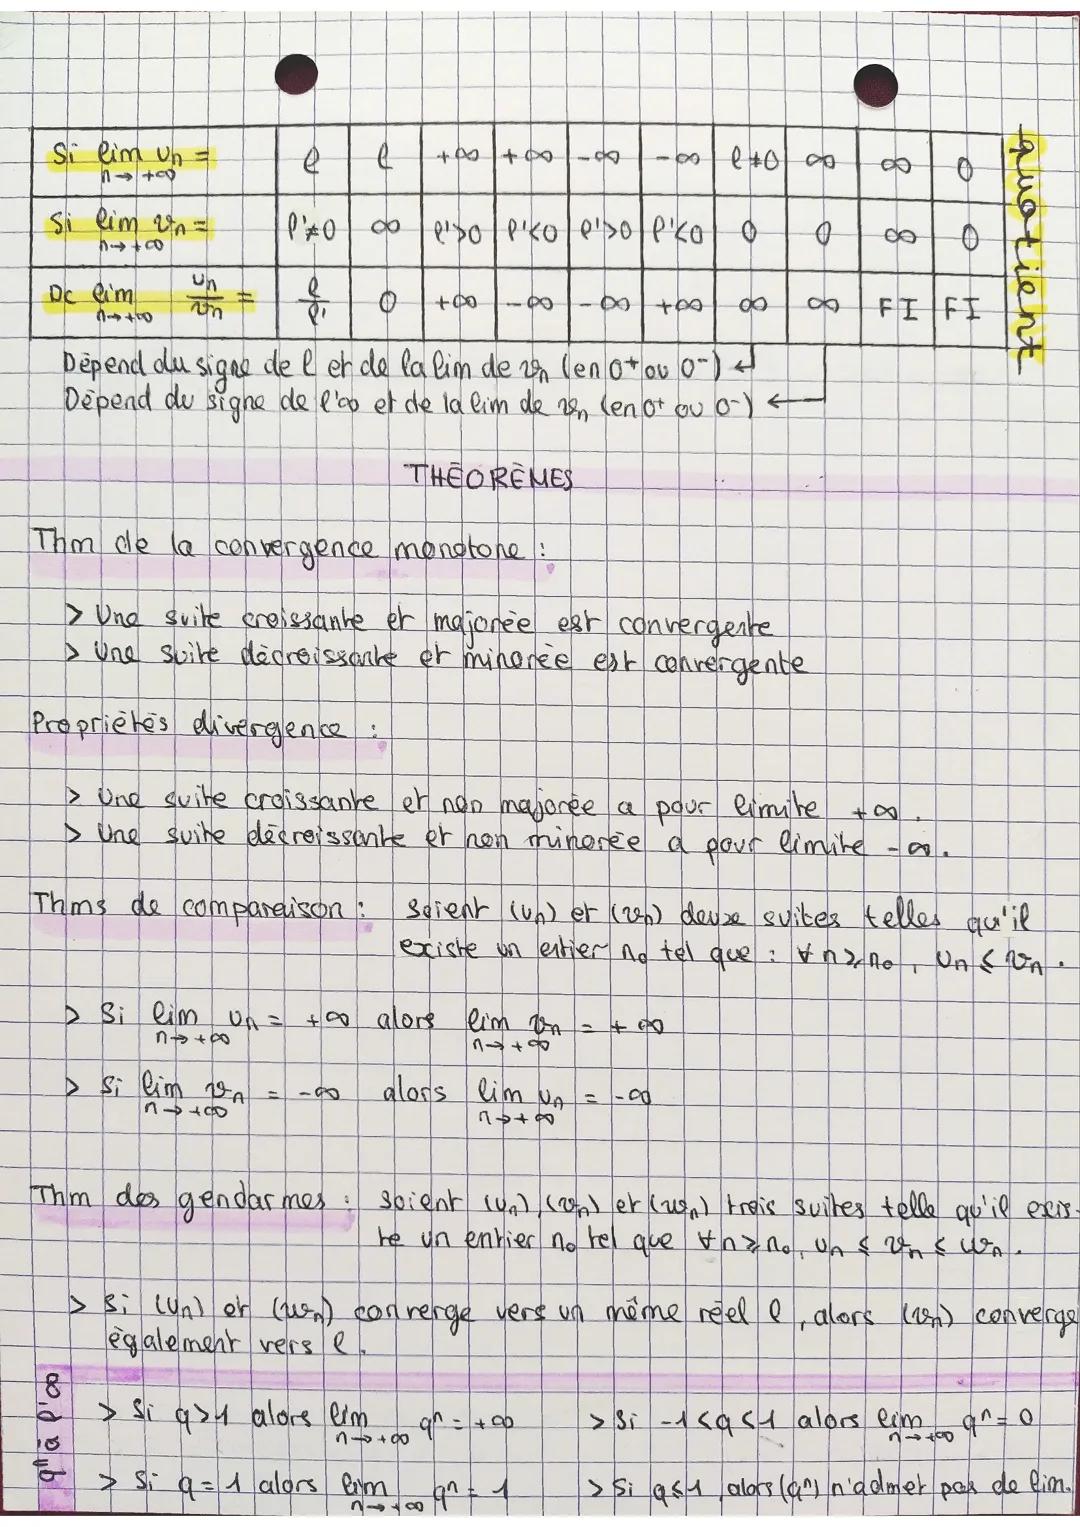 Si lim uₙ = n→+∞ | ℓ | ℓ | +∞ | +∞ | -∞ | -∞ | ℓ≠0 | ∞ | ∞ | 0
Si lim vₙ = n→+∞ | ℓ'≠0 | ∞ | ℓ'>0 | ℓ'<0 | ℓ'>0 | ℓ'<0 | 0 | 0 | ∞ | 0
Dc lim n→+∞ uₙ/vₙ = | ℓ/ℓ' | 0 | +∞ | -∞ | -∞ | +∞ | ∞ | ∞ | FI | FI
quotient
Dépend du signe de ℓ et de la lim de vₙ (en 0⁺ ou 0⁻) ↵
Dépend du signe de l'∞ et de la lim de vₙ (en 0⁺ ou 0⁻) ←
THÉORÈMES
Thm de la convergence monotone :
> Une suite croissante et majorée est convergente
> Une suite décroissante et minorée est convergente
Propriétés divergence :
> Une suite croissante et non majorée a pour limite +∞.
> Une suite décroissante et non minorée a pour limite -∞.
Thms de comparaison : soient (uₙ) et (vₙ) deux suites telles qu'il
existe un entier n₀ tel que : ∀ n ≥ n₀, uₙ ≤ vₙ.
> Si lim uₙ = +∞ alors lim vₙ = +∞
n→+∞ n→+∞
> Si lim vₙ = -∞ alors lim uₙ = -∞
n→+∞ n→+∞
Thm des gendarmes : soient (uₙ), (vₙ) et (wₙ) trois suites telle qu'il exis-
te un entier n₀ tel que ∀ n ≥ n₀, uₙ ≤ vₙ ≤ wₙ.
> Si (uₙ) et (wₙ) converge vers un même réel ℓ, alors (vₙ) converge
également vers ℓ.
qⁿ à l'∞
> Si q>1 alors lim qⁿ = +∞ > Si -1<q<1 alors lim qⁿ = 0
n→+∞ n→+∞
> Si q = 1 alors lim qⁿ = 1 > Si q≤1, alors (qⁿ) n'admet pas de lim.
n→+∞